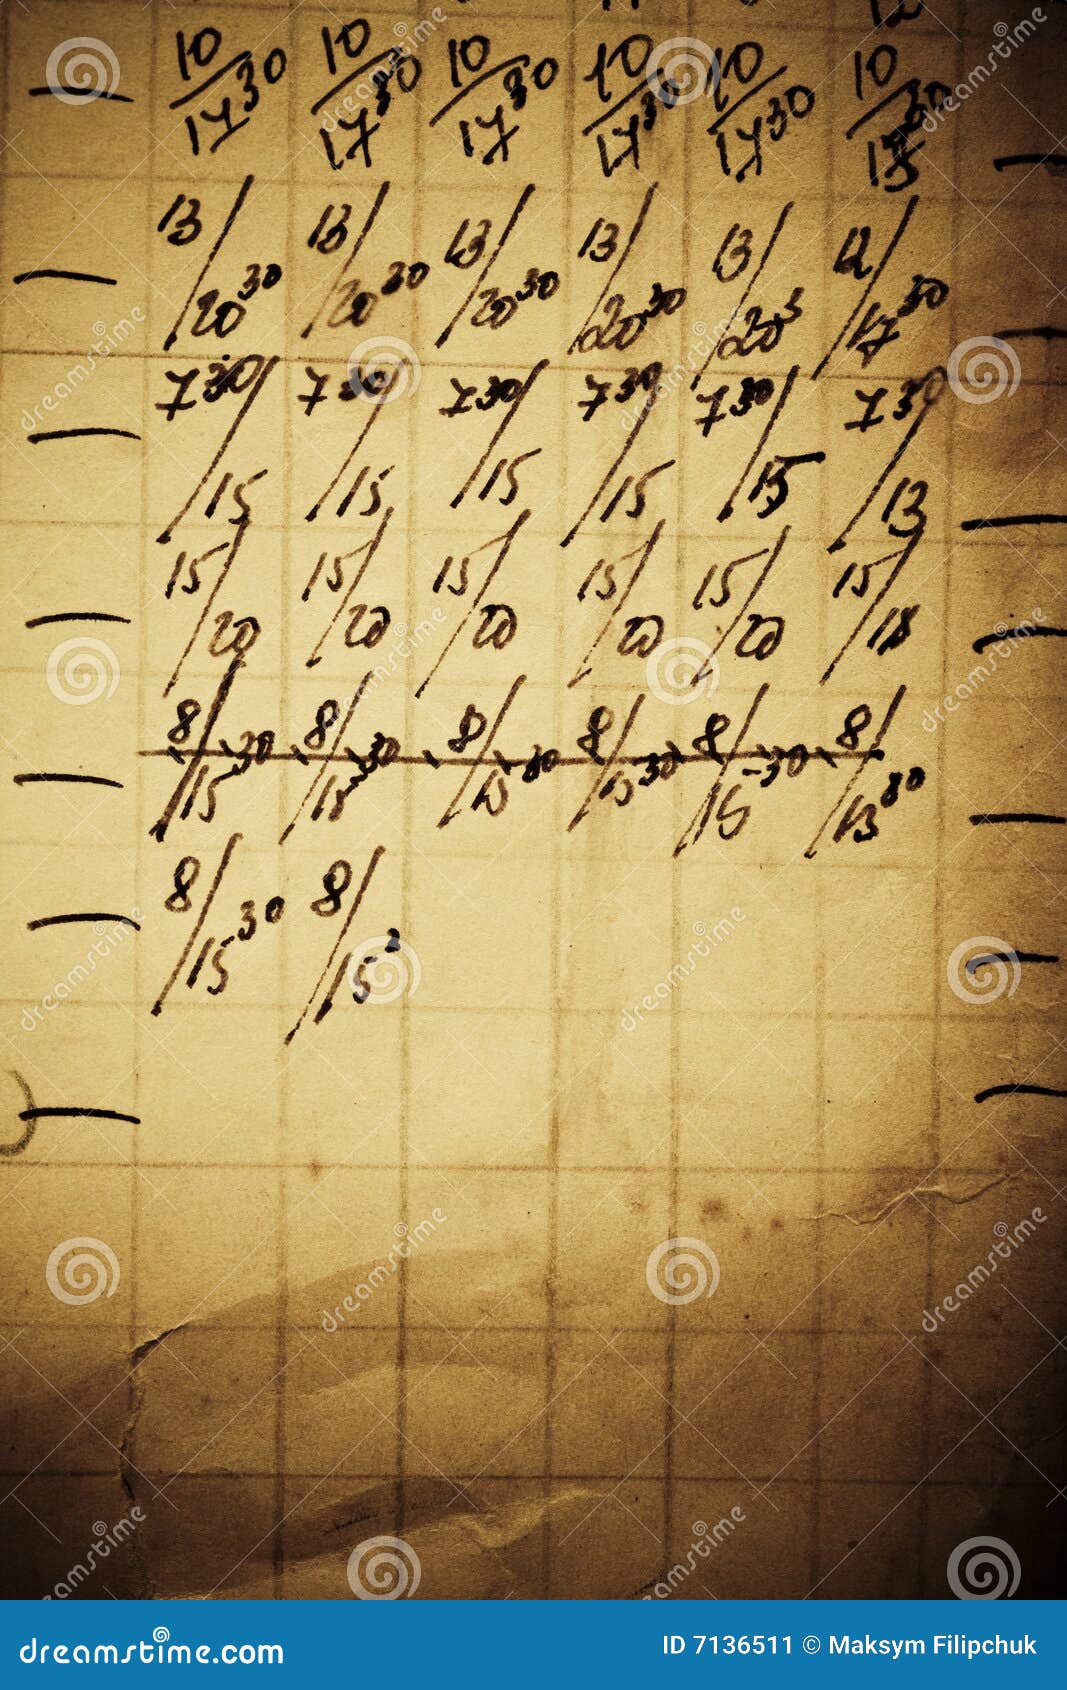 10/17³⁰ 10/17³⁰ 10/17³⁰ 10/17³⁰ 10/17³⁰ 10/
13/20³⁰ 13/20³⁰ 13/20³⁰ 13/20³⁰ 13/20³ 12/17³⁰
7³⁰/15 7³⁰/15 7³⁰/15 7³⁰/15 7³⁰/15 7³⁰/13
15/20 15/20 15/20 15/20 15/20 15/18
8/15³⁰ 8/15³⁰ 8/15³⁰ 8/15³⁰ 8/15³⁰ 8/13³⁰
8/15³⁰ 8/15³
dreamstime.com
ID 7136511 © Maksym Filipchuk